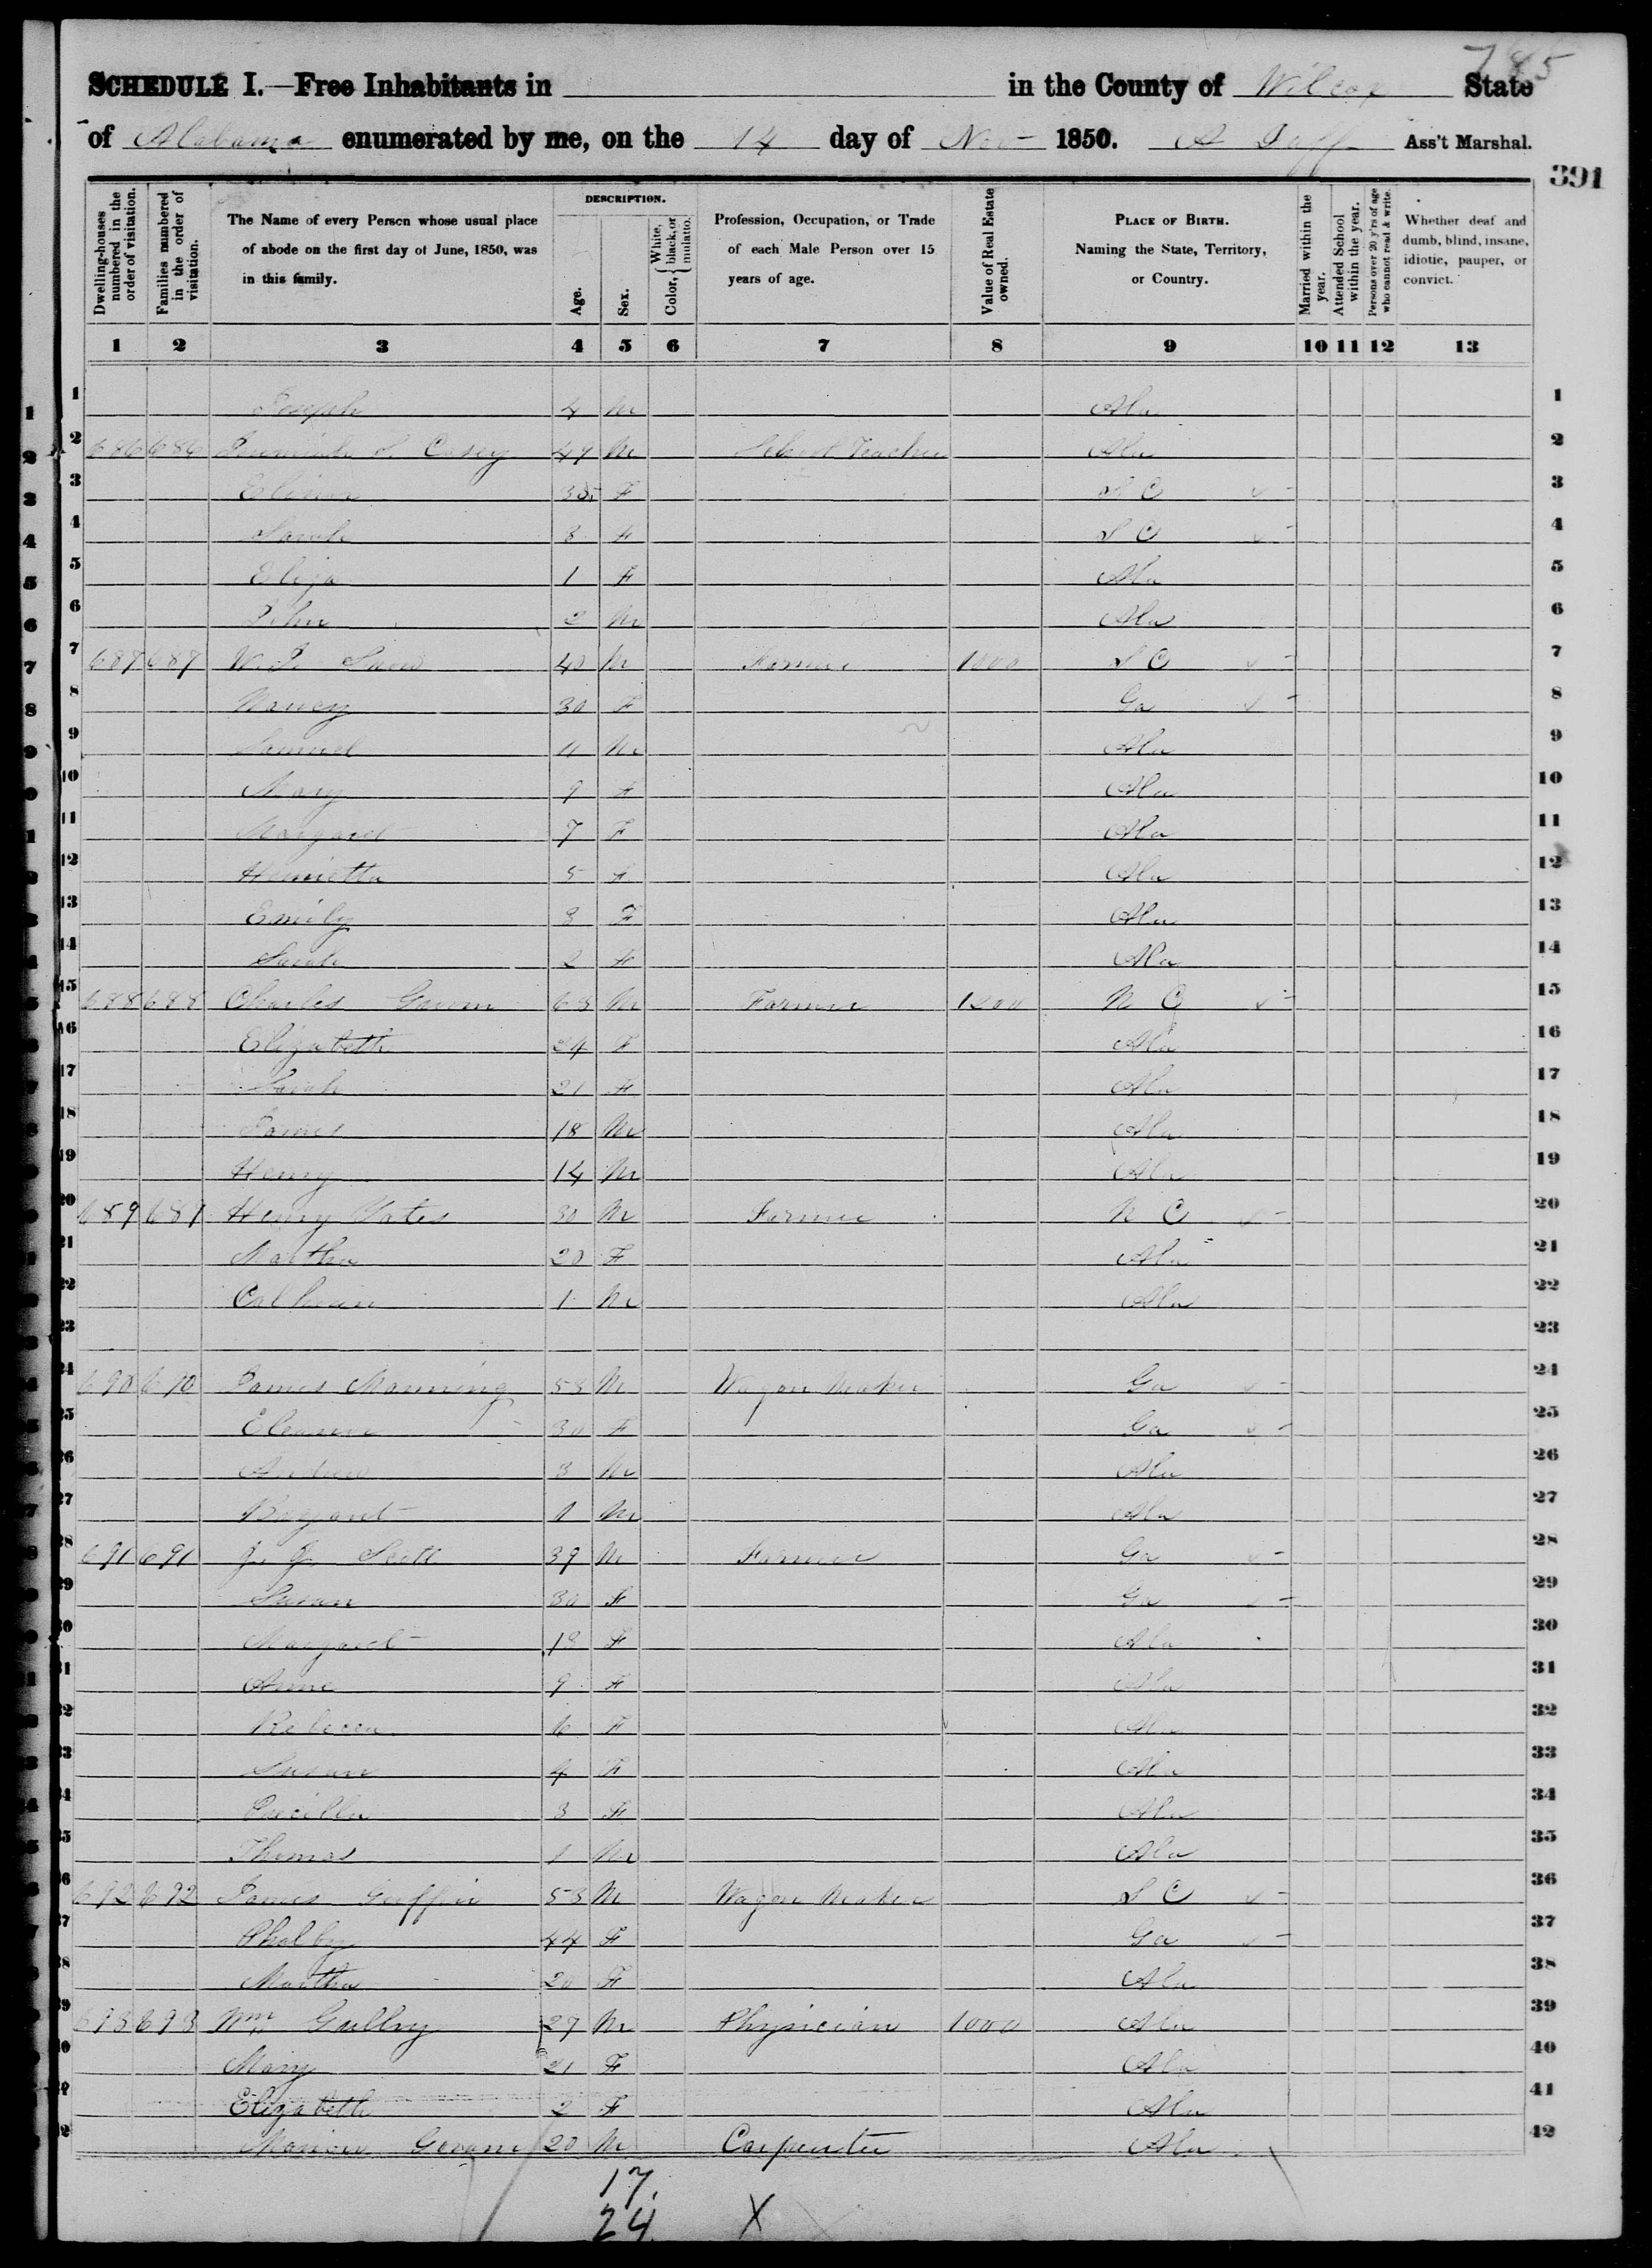 785
SCHEDULE I.—Free Inhabitants in in the County of Wilcox State
of Alabama enumerated by me, on the 14 day of Nov 1850. A Ass't Marshal.
391
Dwelling-houses numbered in the order of visitation.
Families numbered in the order of visitation.
The Name of every Person whose usual place of abode on the first day of June, 1850, was in this family.
DESCRIPTION.
Age.
Sex.
Color, { White, black, or mulatto.
Profession, Occupation, or Trade of each Male Person over 15 years of age.
Value of Real Estate owned.
PLACE OF BIRTH. Naming the State, Territory, or Country.
Married within the year.
Attended School within the year.
Persons over 20 y'rs of age who cannot read & write.
Whether deaf and dumb, blind, insane, idiotic, pauper, or convict.
1 2 3 4 5 6 7 8 9 10 11 12 13
1 Joseph 4 M Ala 1
2 686 686 Casey 49 M School Teacher Ala 2
3 35 F S C 3
4 Sarah 3 F S C 4
5 Eliza 1 F Ala 5
6 John 2 M Ala 6
7 687 687 W. 40 M Farmer 1000 S C 7
8 Nancy 30 F Ga 8
9 Samuel 11 M Ala 9
10 Mary 9 F Ala 10
11 Margaret 7 F Ala 11
12 Henrietta 5 F Ala 12
13 Emily 3 F Ala 13
14 Sarah 2 F Ala 14
15 688 688 Charles 63 M Farmer 1200 N C 15
16 Elizabeth 24 F Ala 16
17 Sarah 21 F Ala 17
18 James 18 M Ala 18
19 Henry 14 M Ala 19
20 689 689 Henry Yates 30 M Farmer N C 20
21 Martha 20 F Ala 21
22 Calhoun 1 M Ala 22
23 23
24 690 690 James Manning 53 M Wagon Maker Ga 24
25 Eleanor 30 F Ga 25
26 Andrew 3 M Ala 26
27 1 M Ala 27
28 691 691 J. J. Scott 39 M Farmer Ga 28
29 Susan 30 F Ga 29
30 Margaret 13 F Ala 30
31 Anne 9 F Ala 31
32 Rebecca 6 F Ala 32
33 Susan 4 F Ala 33
34 3 F Ala 34
35 Thomas 1 M Ala 35
36 692 692 James Griffin 53 M Wagon Maker S C 36
37 44 F Ga 37
38 Martha 20 F Ala 38
39 693 693 Wm Gulley 27 M Physician 1000 Ala 39
40 Mary 21 F Ala 40
41 Elizabeth 2 F Ala 41
42 Marion 20 M Carpenter Ala 42
17
24 X